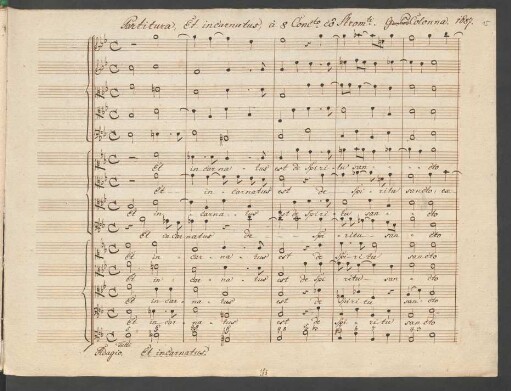 Partitura, Et incarnatus, à 8 Conc.to có Strom.ti. Colonna. 1687.
Et in-car-na-tus est de Spi-ri-tu san-cto
Et in-carnatus est de Spi-ri-tu sancto, ex
Et in-carna-tus est de Spi-ri-tu san-cto
Et incarnatus de Spi-ritu-san-cto
Et in-car-na-tus est de Spi-ri-tu sancto
Et in-car-na-tus est de Spi-ritu-san-cto
Et in-car-na-tus est de Spiritu sancto
Et in-car-na-tus est de Spi-ri-tu sancto
Tutti
Adagio Et incarnatus